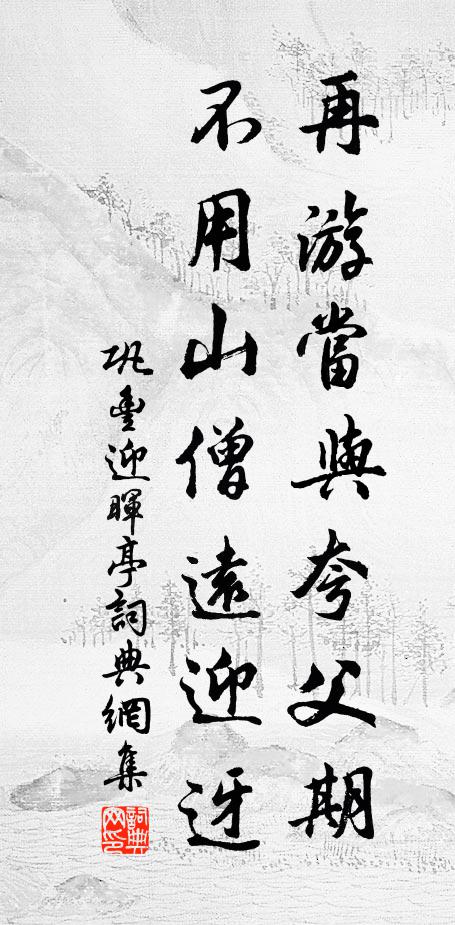 再游當與夸父期
不用山僧遠迎迓
巩豐迎暉亭詞典網集
詞典網印